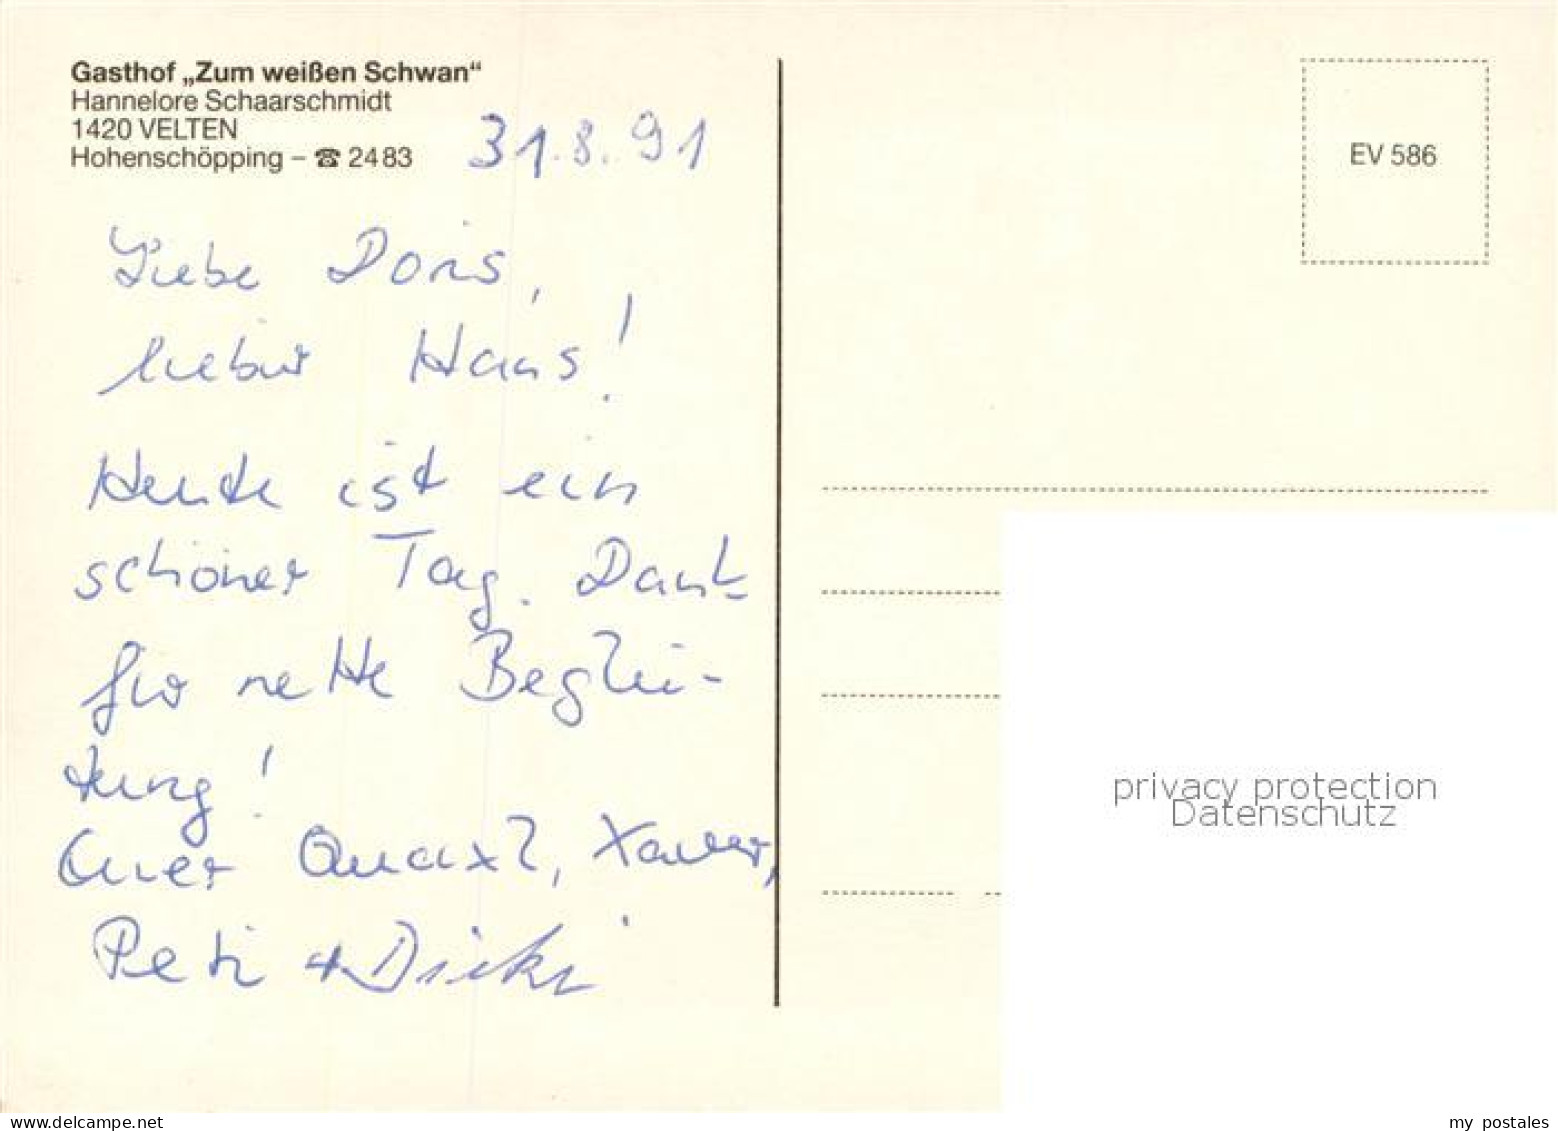 Gasthof „Zum weißen Schwan“
Hannelore Schaarschmidt
1420 VELTEN
Hohenschöpping – ☎ 2483
31.8.91
Liebe Doris,
lieber Hans!
Heute ist ein
schöner Tag. Dank
für nette Beglei-
tung!
Euer Quaxl, Xaver,
Peti + Dicki
EV 586
privacy protection
Datenschutz
delcampe.net
my_postales